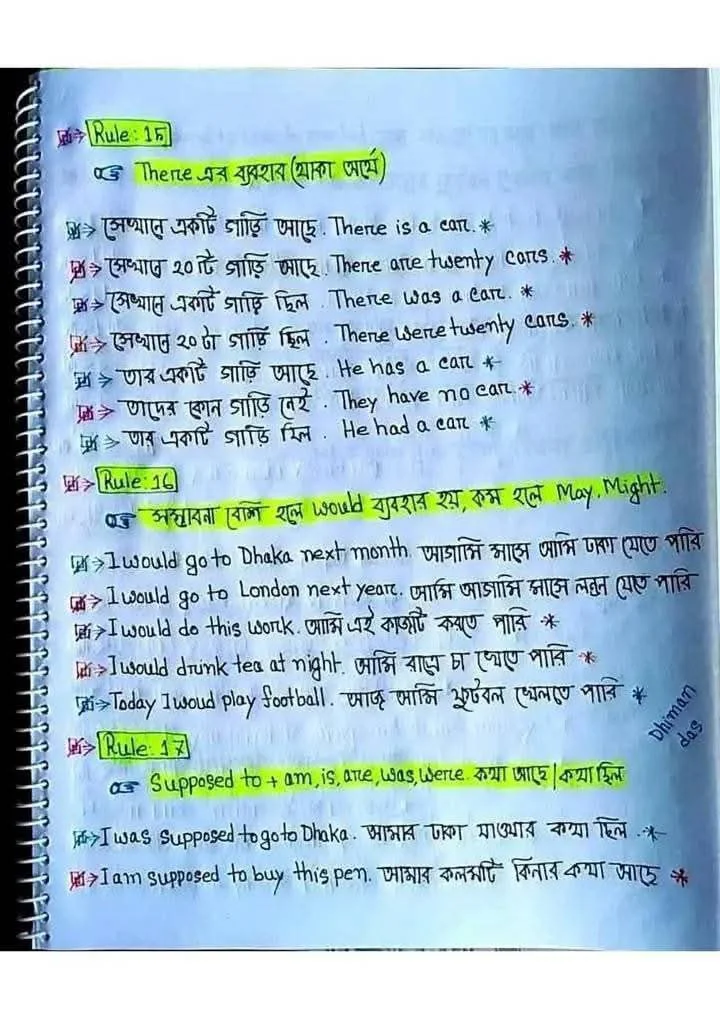 Rule: 15
There এর ব্যবহার (থাকা অর্থে)
সেখানে একটি গাড়ি আছে. There is a car. *
সেখানে ২০ টি গাড়ি আছে. There are twenty cars. *
সেখানে একটি গাড়ি ছিল. There was a car. *
সেখানে ২০ টা গাড়ি ছিল. There were twenty cars. *
তার একটি গাড়ি আছে. He has a car *
তাদের কোন গাড়ি নেই. They have no car. *
তার একটি গাড়ি ছিল. He had a car *
Rule: 16
সম্ভাবনা বেশি হলে would ব্যবহার হয়, কম হলে May, Might.
I would go to Dhaka next month. আগামি মাসে আমি ঢাকা যেতে পারি
I would go to London next year. আমি আগামি মাসে লন্ডন যেতে পারি
I would do this work. আমি এই কাজটি করতে পারি *
I would drink tea at night. আমি রাতে চা খেতে পারি *
Today I woud play football. আজ আমি ফুটবল খেলতে পারি *
Dhiman das
Rule: 17
Supposed to + am, is, are, was, were. কথা আছে | কথা ছিল
I was supposed to go to Dhaka. আমার ঢাকা যাওয়ার কথা ছিল. *
I am supposed to buy this pen. আমার কলমটি কিনার কথা আছে *